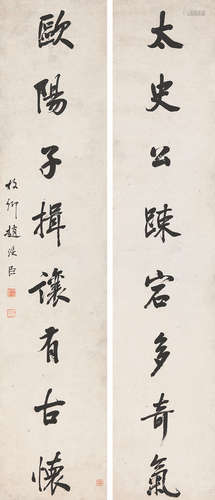 太史公踈宕多奇氣
歐陽子揖讓有古懷
卿趙臣